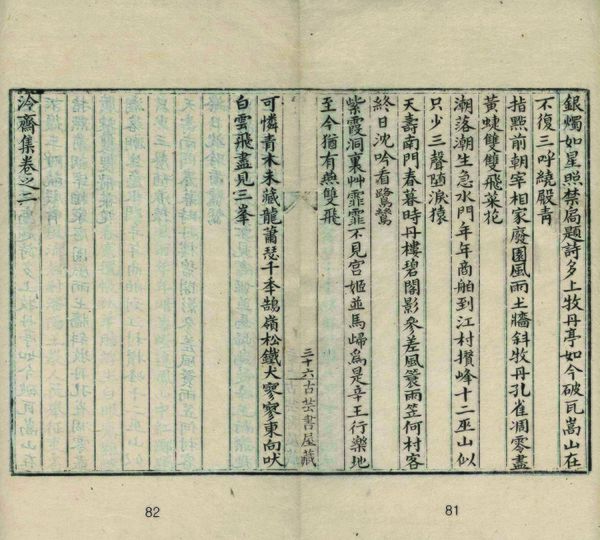 銀燭如星照禁扃題詩多上牧丹亭如今破瓦嵩山在
不復三呼繞殿青
指點前朝宰相家廢園風雨土牆斜牧丹孔雀凋零盡
黃蜨雙雙飛菜花
潮落潮生急水門年年商舶到江村攢峰十二巫山似
只少三聲墮淚猿
天壽南門春暮時丹樓碧閣影參差風簑雨笠何村客
終日沈吟看鷺鷥
紫霞洞裏艸霏霏不見宮姬並馬歸爲是辛王行樂地
至今猶有燕雙飛
三十六古芸書屋藏
可憐青木未藏龍蕭瑟千季鵠嶺松鐵犬寥寥東向吠
白雲飛盡見三峯
泠齋集卷之二
82
81